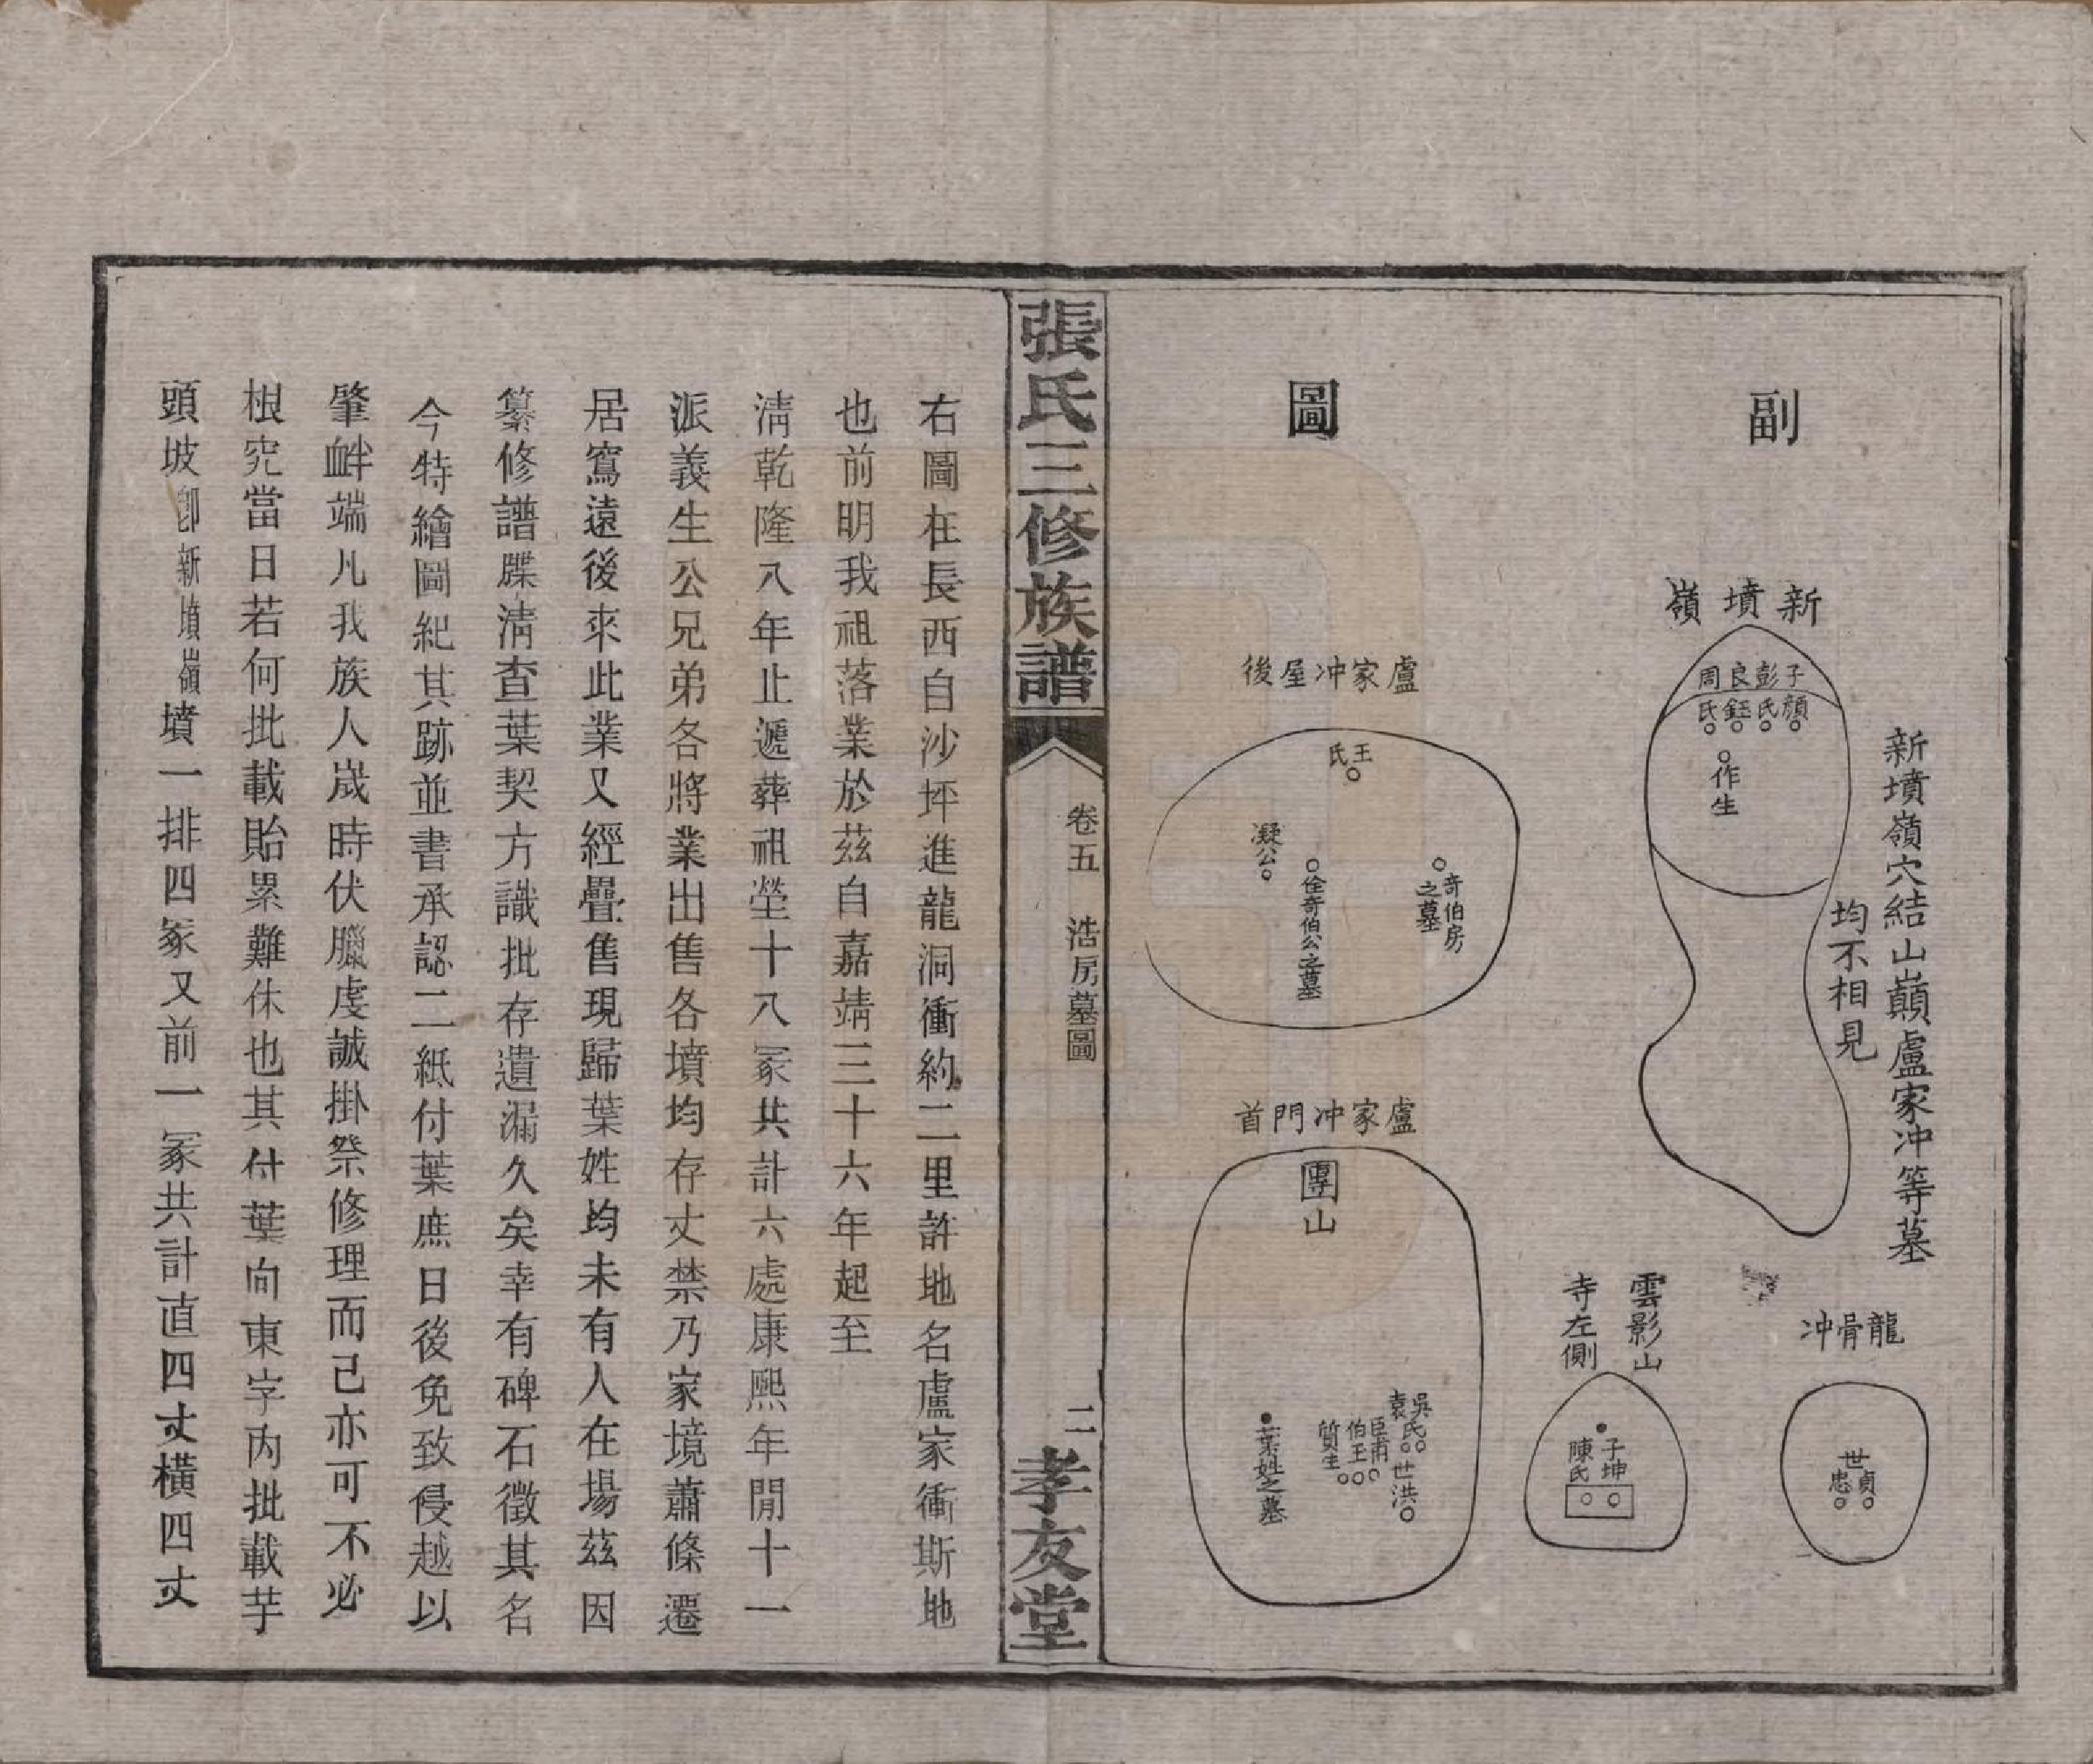 副
圖
新墳嶺
子顏
彭氏
良鈺
周氏
作生
新墳嶺穴結山巔盧家冲等墓
均不相見
龍骨冲
世貞
忠
雲影山
寺左側
子坤
陳氏
盧家冲屋後
王氏
奇伯房
之墓
佺奇伯公之墓
凝公
盧家冲門首
團山
吳氏
袁
世洪
臣甫
伯玉
質生
葉姓之墓
張氏三修族譜
卷五 浩房墓圖
二
孝友堂
右圖在長西白沙坪進龍洞衝約二里許地名盧家衝斯地
也前明我祖落業於茲自嘉靖三十六年起至
清乾隆八年止遞葬祖塋十八冢共計六處康熙年間十一
派義生公兄弟各將業出售各墳均存丈禁乃家境蕭條遷
居寫遠後來此業又經疊售現歸葉姓均未有人在場茲因
纂修譜牒清查葉契方識批存遺漏久矣幸有碑石徵其名
今特繪圖紀其跡並書承認二紙付葉庶日後免致侵越以
肇衅端凡我族人歲時伏臘虔誠掛祭修理而已亦可不必
根究當日若何批載貽累難休也其付葉向東字內批載芋
頭坡卽新墳嶺墳一排四冢又前一冢共計直四丈橫四丈